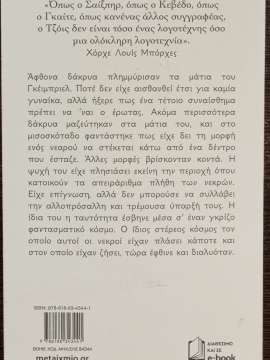 «Όπως ο Σαίξπηρ, όπως ο Κεβέδο, όπως
ο Γκαίτε, όπως κανένας άλλος συγγραφέας,
ο Τζόις δεν είναι τόσο ένας λογοτέχνης όσο
μια ολόκληρη λογοτεχνία».
Χόρχε Λουίς Μπόρχες
Άφθονα δάκρυα πλημμύρισαν τα μάτια του
Γκέιμπριελ. Ποτέ δεν είχε αισθανθεί έτσι για καμία
γυναίκα, αλλά ήξερε πως ένα τέτοιο συναίσθημα
πρέπει να 'ναι ο έρωτας. Ακόμα περισσότερα
δάκρυα μαζεύτηκαν στα μάτια του, και στο
μισοσκόταδο φαντάστηκε πως είδε τη μορφή
ενός νεαρού να στέκεται κάτω από ένα δέντρο
που έσταζε. Άλλες μορφές βρίσκονταν κοντά. Η
ψυχή του είχε πλησιάσει εκείνη την περιοχή όπου
κατοικούν τα απειράριθμα πλήθη των νεκρών.
Είχε επίγνωση, αλλά δεν μπορούσε να συλλάβει
την αλλοπρόσαλλη και τρέμουσα ύπαρξή τους. Η
ίδια του η ταυτότητα έσβηνε μέσα σ' έναν γκρίζο
φασματικό κόσμο. Ο ίδιος στέρεος κόσμος τον
οποίο αυτοί οι νεκροί είχαν πλάσει κάποτε και
στον οποίο είχαν ζήσει, τώρα έφθινε και διαλυόταν.
metaixmio.gr
ΔΙΑΘΕΣΙΜΟ
ΚΑΙ ΣΕ
e-book